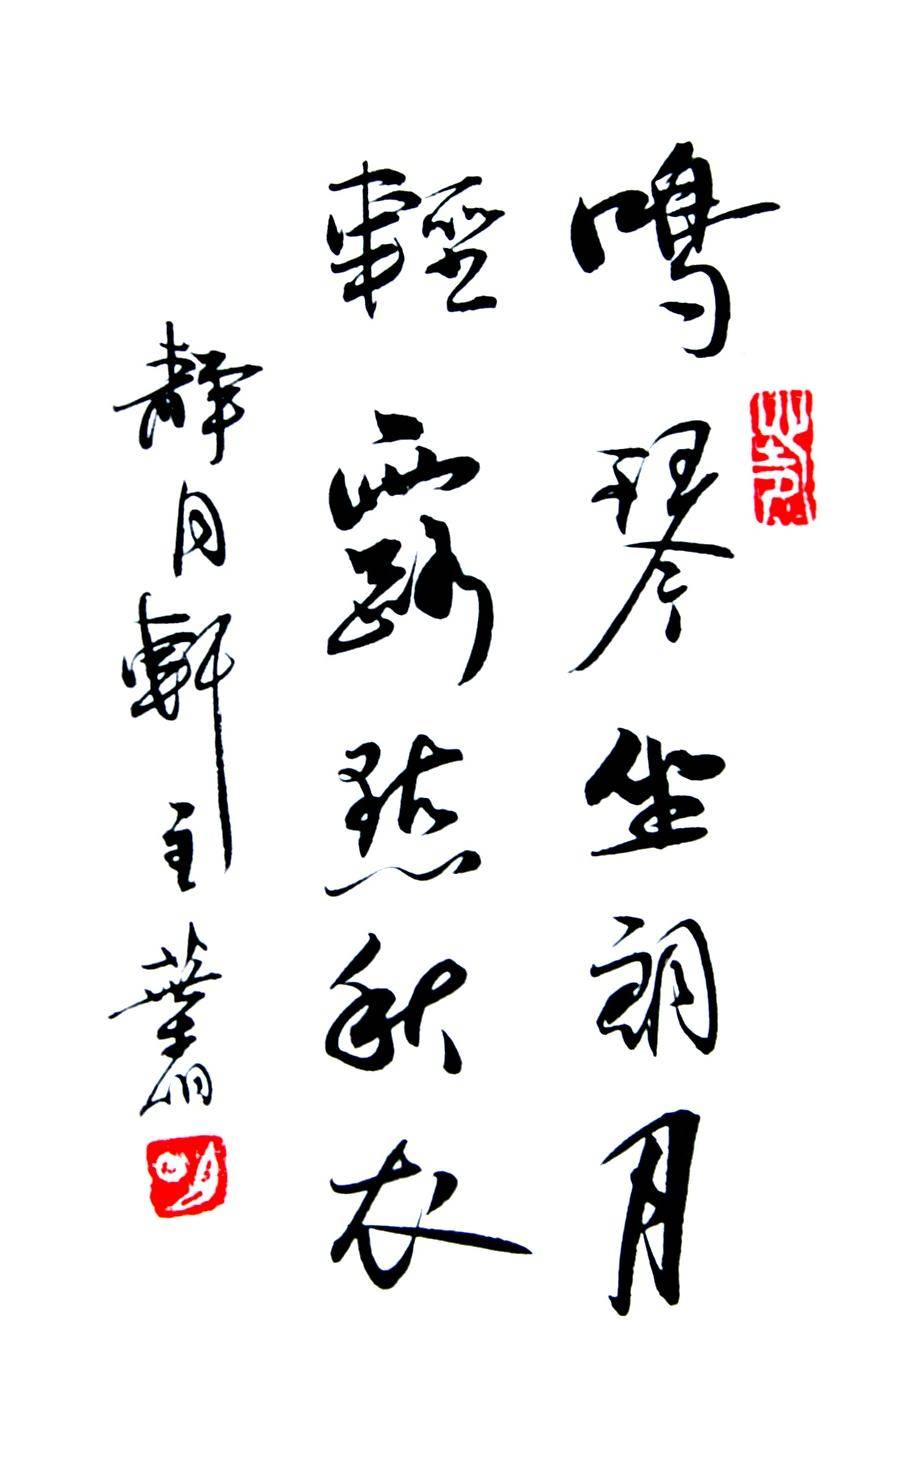 鳴琴坐朗月
輕露點秋衣
靜月軒主葉明
明